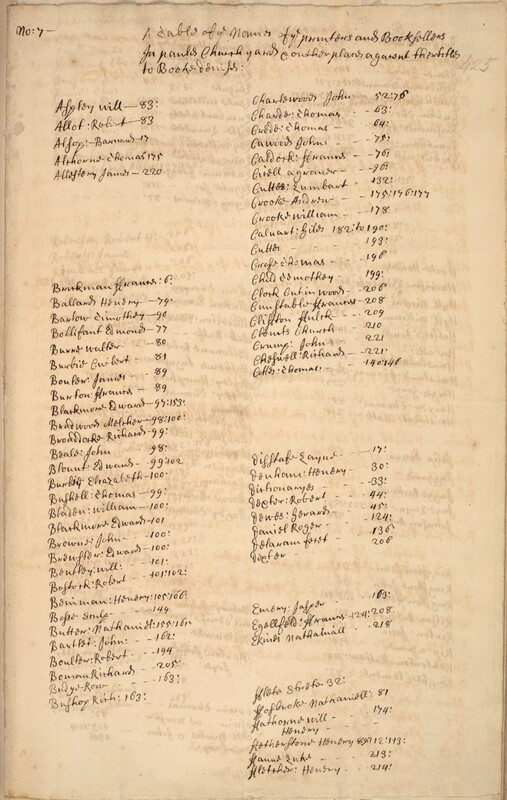 No: 7 —
A Table of ye Names of ye printers and Booksellers
In paules Church yard & other places agacent the titles
to Booke
Aspley will — 83:
Allot: Robert — 83
Alsop: Barnard 17
Alchorne Thomas 175
Allestery James — 220
Brickman ffrances: 6:
Ballard Henery — 79:
Barlow Timothey — 90
Bollifant Edmond — 77
Burre walter — 80
Burbie Cutbert — 81
Bonler James — 89
Burton ffrances — 89
Blackmore Edward — 97:153:
Bradwood Melcher — 98:100:
Broadocke Richard — 99:
Beale: John — 98:
Blount: Edward — 99:102
Burbie Elizabeth — 100:
Bushell: Thomas — 99:
Bladen: william — 100:
Blackmore Edward — 101
Browne: John — 100:
Brewster: Edward — 100:
Bentley: will: — 101:
Bostock: Robert — 101:102:
Beniman: Henery: 105:106:
Bosse — 149
Butter: Nathaniel: 155:161:
Bartlet: John: — 162:
Boulter: Robert — 194
Boman Richards — 205:
Budge Row — 163:
Bushop Rich: 163:
Charlewoods John — 52:76
Charde: Thomas — 63:
Crede: Thomas — 64:
Cawoods John: — 75:
Caldock: ffrances — 76:
— 96:
Cuttes: Lumbart — 132:
Crooke Andrew — 175:176:177
Crooke william — 178
Calvart: Giles 182: to 190:
Cuttes — 193:
Crose Thomas — 196
Child Timothey — 199:
Clock Cut in wood — 206
Cunstable ffrances — 208
Clifton — 209
Clemts Church — 210
Crump: John — 221
Cheswell: Richard — 221:
Cotes: Thomas: — 140:146
Distafe Layne — 17:
Denham: Henery — 30:
Dictionaryes — 33:
Dexter: Robert — 44:
Dewes: Gerard: — 45:
Daniel Roger — 124:
Delaram — 136
Dexter — 206
Emery: Jasper — 163:
Egellfeld: ffrances — 124:208
Ekines Nathaniall — 218
fflete Strete 32:
ffosbroke Nathaniell: 81
ffathorne will — 174:
Henery —
ffetherstone Henery 89:112:113:
ffawne Luke — 213:
ffletcher: Henery — 214: